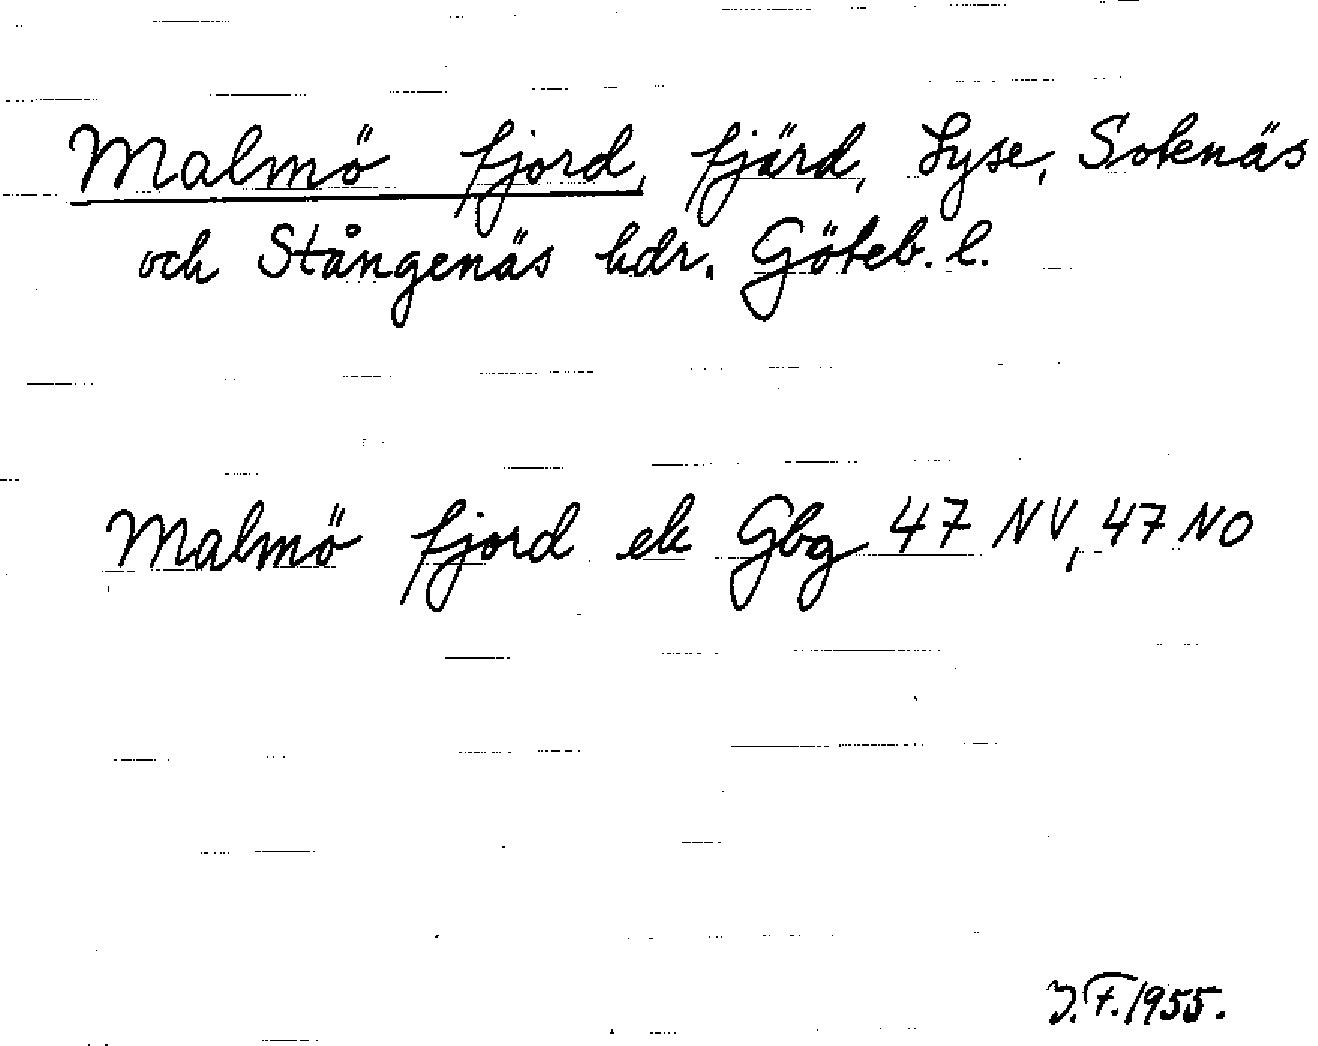 Malmö fjord, fjärd, Lyse, Sotenäs
och Stångenäs hdr. Göteb. l.
Malmö fjord ek Gbg 47 NV, 47 NO
J.F. 1955.